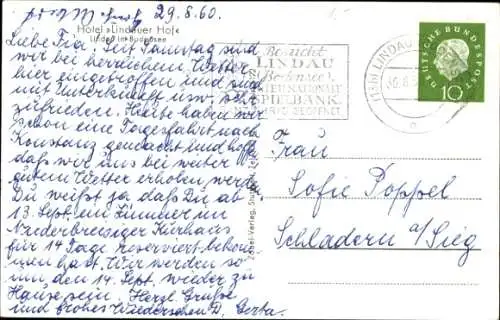 29.8.60.
Hotel »Lindauer Hof«
Lindau im Bodensee
Liebe Fia! Seit Samstag sind
wir bei herrlichem Wetter
hier eingetroffen und sind
mit Unterkunft usw. sehr
zufrieden. Heute haben wir
schon eine Tagesfahrt nach
Konstanz gemacht und hoff.
daß wir uns bei weiter
gutem Wetter erholen werd.
Du weißt ja daß Du ab
13. Sept. ein Zimmer im
Niederbreisiger Kurhaus
für 14 Tage reserviert bekom-
men hast. Wir werden so
um den 14. Sept. wieder zu
Hause sein. Herzl. Grüße
und frohes Wiedersehen D. Gerta.
Besucht
LINDAU
(Bodensee)
INTERNATIONALE
SPIELBANK
LINDAU
DEUTSCHE BUNDESPOST
10
Frau
Sofie Poppel
Schladern a/Sieg